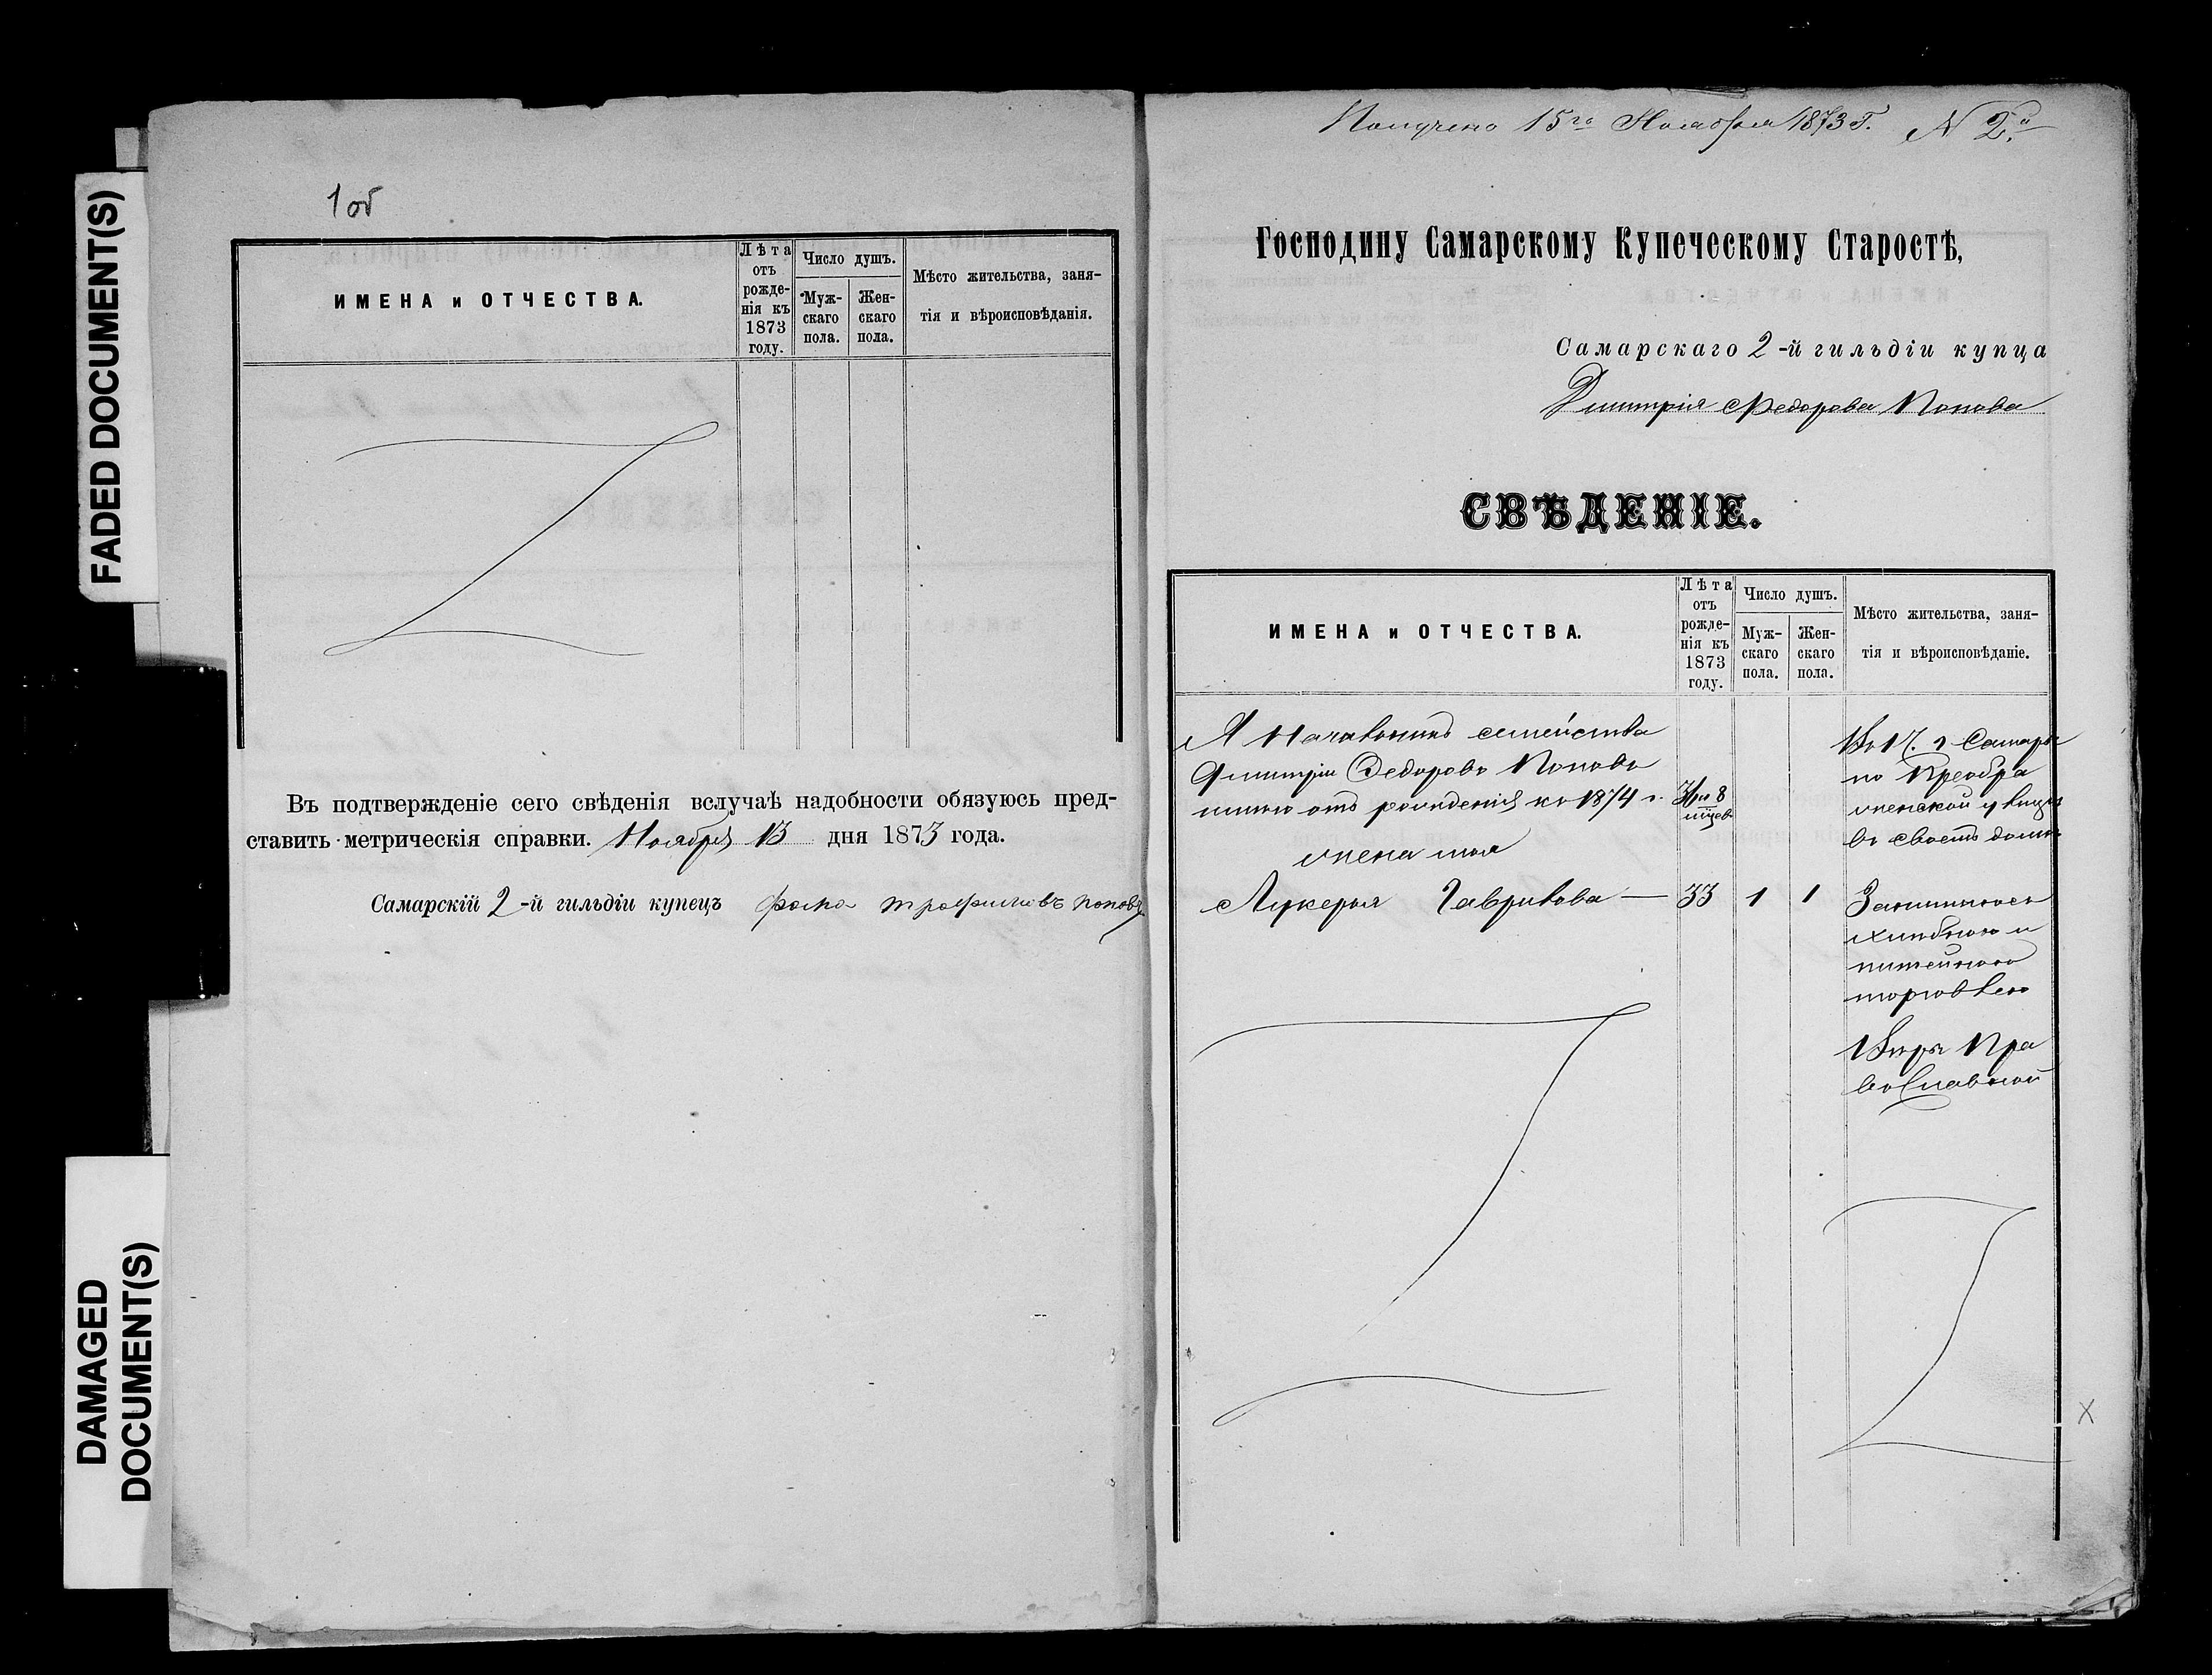 FADED DOCUMENT(S)
DAMAGED
DOCUMENT(S)
1 об
ИМЕНА и ОТЧЕСТВА.
Лѣта
отъ
рожде-
нія къ
1873
году.
Число душъ.
Муж-
скаго
пола.
Жен-
скаго
пола.
Мѣсто жительства, заня-
тія и вѣроисповѣданія.
Въ подтвержденіе сего свѣденія вслучаѣ надобности обязуюсь пред-
ставить метрическія справки. Ноября 13 дня 1873 года.
Самарскій 2-й гильдіи купецъ Фока трофимовъ поповъ
Получено 15го Ноября 1873 г. N 2й
Господину Самарскому Купеческому Старостѣ,
Самарскаго 2-й гильдіи купца
Дмитрія Федорова Попова
СВѢДЕНІЕ.
ИМЕНА и ОТЧЕСТВА.
Лѣта
отъ
рожде-
нія къ
1873
году.
Число душъ.
Муж-
скаго
пола.
Жен-
скаго
пола.
Мѣсто жительства, заня-
тія и вѣроисповѣданіе.
Я Начальникъ семейства
Дмитрій Федоровъ Поповъ
отъ рожденія къ 1874 г.
жена моя
Лукерья Гаврилова — 33 1 1
Во 1 ч. г Самары
по Преобра
женской улицѣ
въ своемъ домѣ
Занимаюсь
хлѣбною и
питейною
торговлею
Вѣры Пра
вославной
X